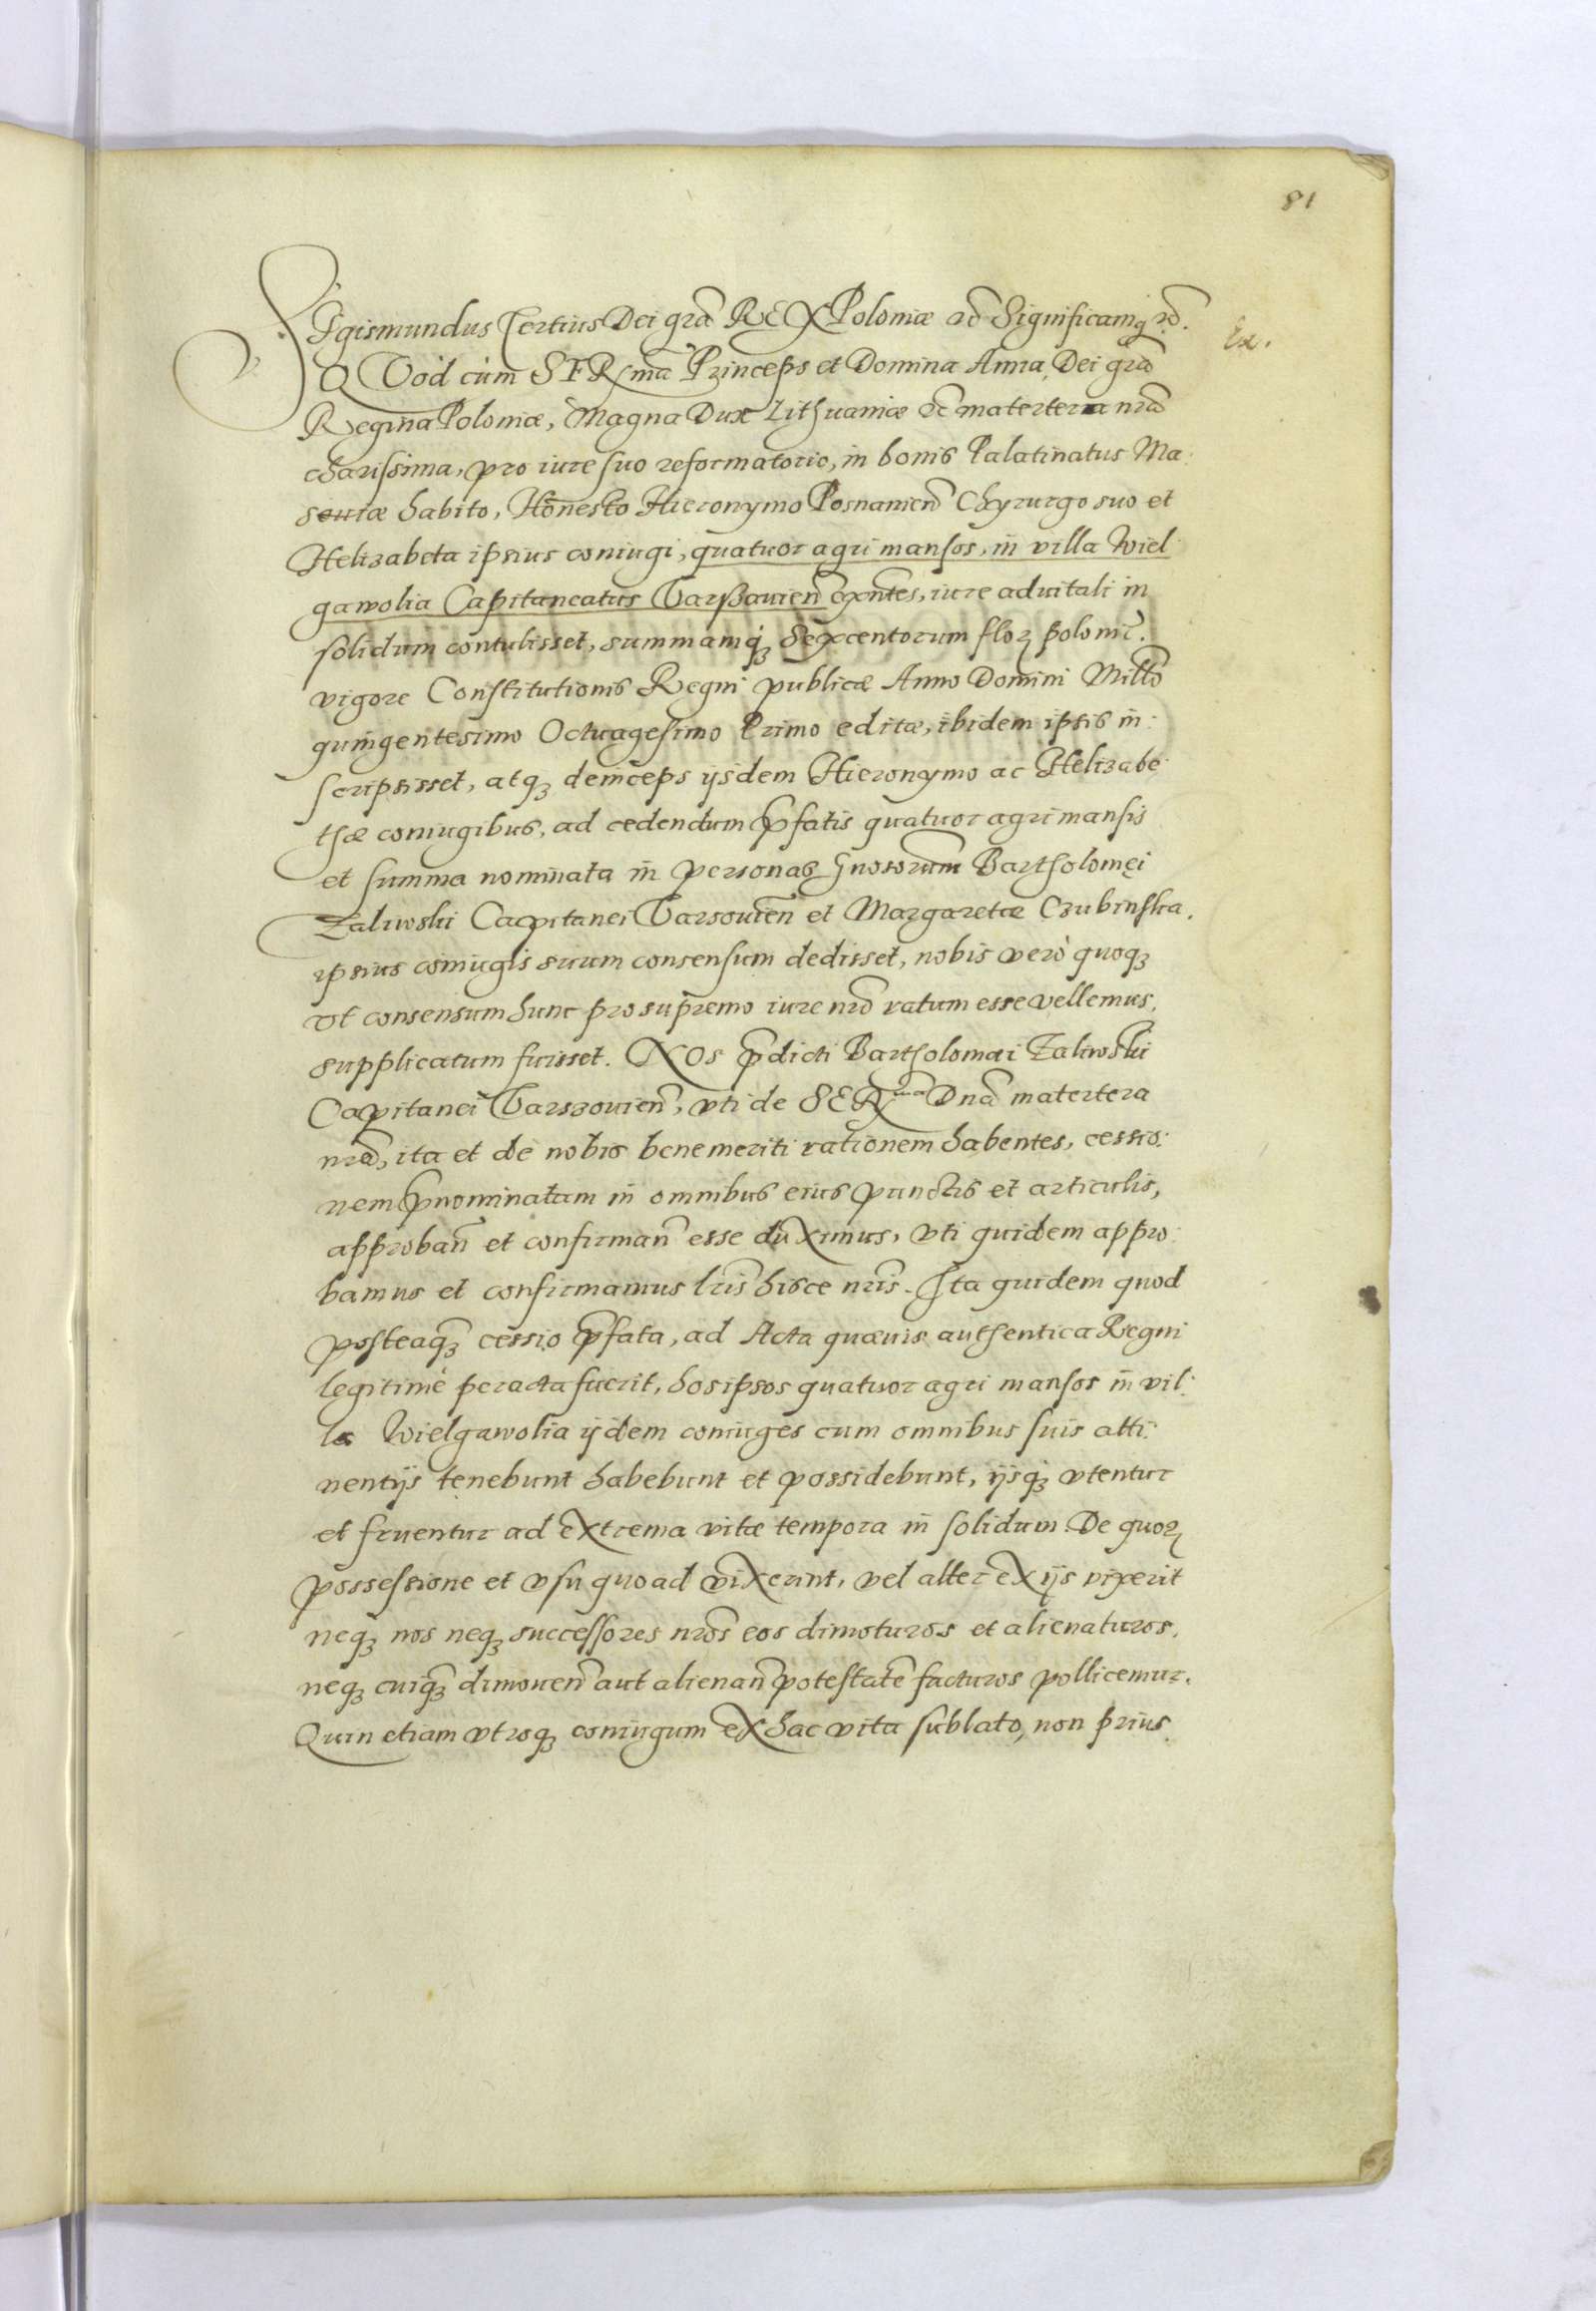 81
SIgismundus Tertius Dei gra͠ REX Poloniæ etc͠ Significamꝯ etc͠.
Ex.
QVod cùm SERma͠ Princeps et Domina Anna, Dei gra͠
Regina Poloniæ, Magna Dux Lithuaniæ etc͠ matertera nra͠
charissima, pro iure suo reformatorio, in bonis Palatinatus Ma:
souiæ habito, Honesto Hieronymo Posnanien͠ Chyrurgo suo et
Helizabeta ipsius coniugi, quatuor agri mansos, in villa Wiel
gawolia Capitaneatus Tarßouien͠ exn͠tes, iure aduitali in
solidum contulisset, summamqꝫ Sexcentorum floꝝ polonic͠.
vigore Constitutionis Regni publicæ Anno Domini Millo͠
quingentesimo Octuagesimo Primo editæ, ibidem ipsis in:
scripsisset, atqꝫ deinceps ijsdem Hieronymo ac Helizabe:
thæ coniugibus, ad cedendum p͠fatis quatuor agri mansis
et summa nominata in personas Gnosorum͠ Bartholomęi
Zaliwski Capitanei Tarsouien͠ et Margaretæ Czubinska,
ipsius coniugis suum consensum dedisset, nobis verò quoqꝫ
vt consensum hunc pro supremo iure nro͠ ratum esse vellemus,
supplicatum fuisset. NOs p͠dicti Bartholomæi Zaliwski
Capitanei Tarszouien͠, vti de SERma Dna͠ matertera
nra͠, ita et de nobis benemeriti rationem habentes, cessio:
nem p͠nominatam in omnibus eius punctis et articulis,
approban͠ et confirman͠ esse duximus, vti quidem appro:
bamus et confirmamus lris͠ hisce nris͠. Ita quidem quod
posteaqꝫ͠ cessio p͠fata, ad Acta quæuis authentica Regni
legitimè peracta fuerit, hos ipsos quatuor agri mansos in vil:
la Wielgawolia ijdem coniuges cum omnibus suis atti:
nentijs tenebunt habebunt et possidebunt, ijsqꝫ vtentur
et fruentur ad extrema vitæ tempora in solidum. De quoꝝ
possessione et vsu quoad vixerint, vel alter ex ijs vixerit
neqꝫ nos neqꝫ successores nros͠ eos dimoturos et alienaturos,
neqꝫ cuiqꝫ͠ dimouen͠ aut alienan͠ potestate͠ facturos pollicemur.
Quin etiam vtroqꝫ coniugum ex hac vita sublato, non prius